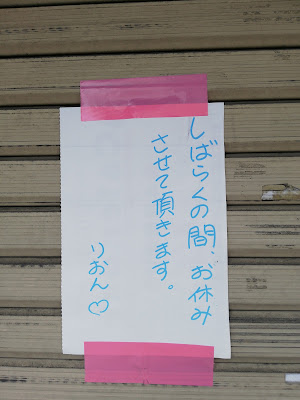 しばらくの間、お休み
させて頂きます。
りおん♡